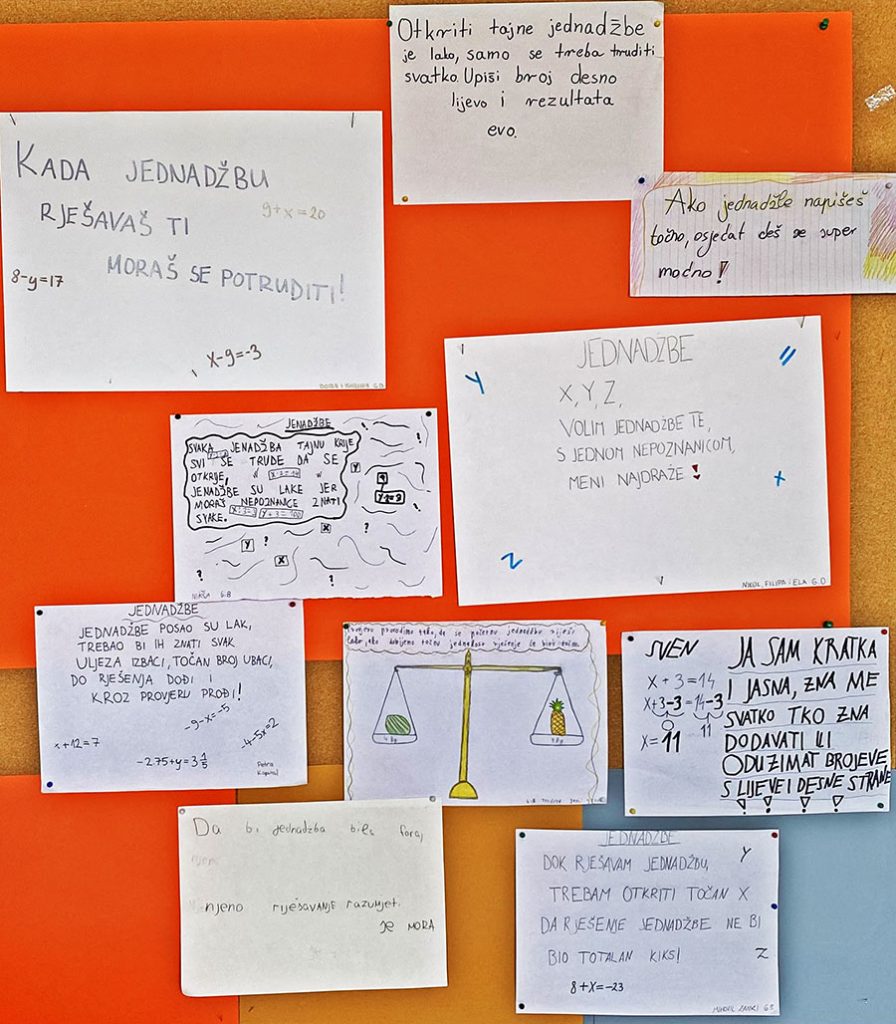 Otkriti tajne jednadžbe
je lako, samo se treba truditi
svatko. Upiši broj desno
lijevo i rezultata
evo.
KADA JEDNADŽBU
RJEŠAVAŠ TI
9+x=20
MORAŠ SE POTRUDITI!
8-y=17
x-9=-3
6.D
Ako jednadžbe napišeš
točno, osjećat ćeš se super
moćno!
JEDNADŽBE
Y
=
X, Y, Z,
VOLIM JEDNADŽBE TE,
S JEDNOM NEPOZNANICOM,
MENI NAJDRAŽE!
+
Z
NIKOL, FILIPA i ELA 6.D
JENADŽBE
SVAKA JENADŽBA TAJNU KRIJE
SVI SE TRUDE DA SE
OTKRIJE,
JENADŽBE SU LAKE JER
MORAŠ NEPOZNANICE ZNATI
SVAKE.
X:3=3
Y+3=100
Y
?
!
X
Y
?
X
!
?
?
6.B
JEDNADŽBE
JEDNADŽBE POSAO SU LAK,
TREBAO BI IH ZNATI SVAK
ULJEZA IZBACI, TOČAN BROJ UBACI,
DO RJEŠENJA DOĐI I
KROZ PROVJERU PROĐI!
-9-x=-5
x+12=7
-4-5x=2
-2.75+y=3 1/5
Petra
Provjeru provodimo tako, da se početnu jednadžbu riješi
tako ako dobijemo točnu jednakost rješenje će biti
4 kg
4 kg
6.B
SVEN
x+3=14
x+3-3=14-3
0
11
x=11
JA SAM KRATKA
I JASNA, ZNA ME
SVATKO TKO ZNA
DODAVATI ILI
ODUZIMAT BROJEVE
S LIJEVE I DESNE STRANE
! ! ! !
Da bi jednadžba bila fora,
njeno riješavanje razumjet
se MORA
JEDNADŽBE
DOK RJEŠAVAM JEDNADŽBU,
Y
TREBAM OTKRITI TOČAN X
DA RJEŠENJE JEDNADŽBE NE BI
BIO TOTALAN KIKS!
Z
8+x=-23